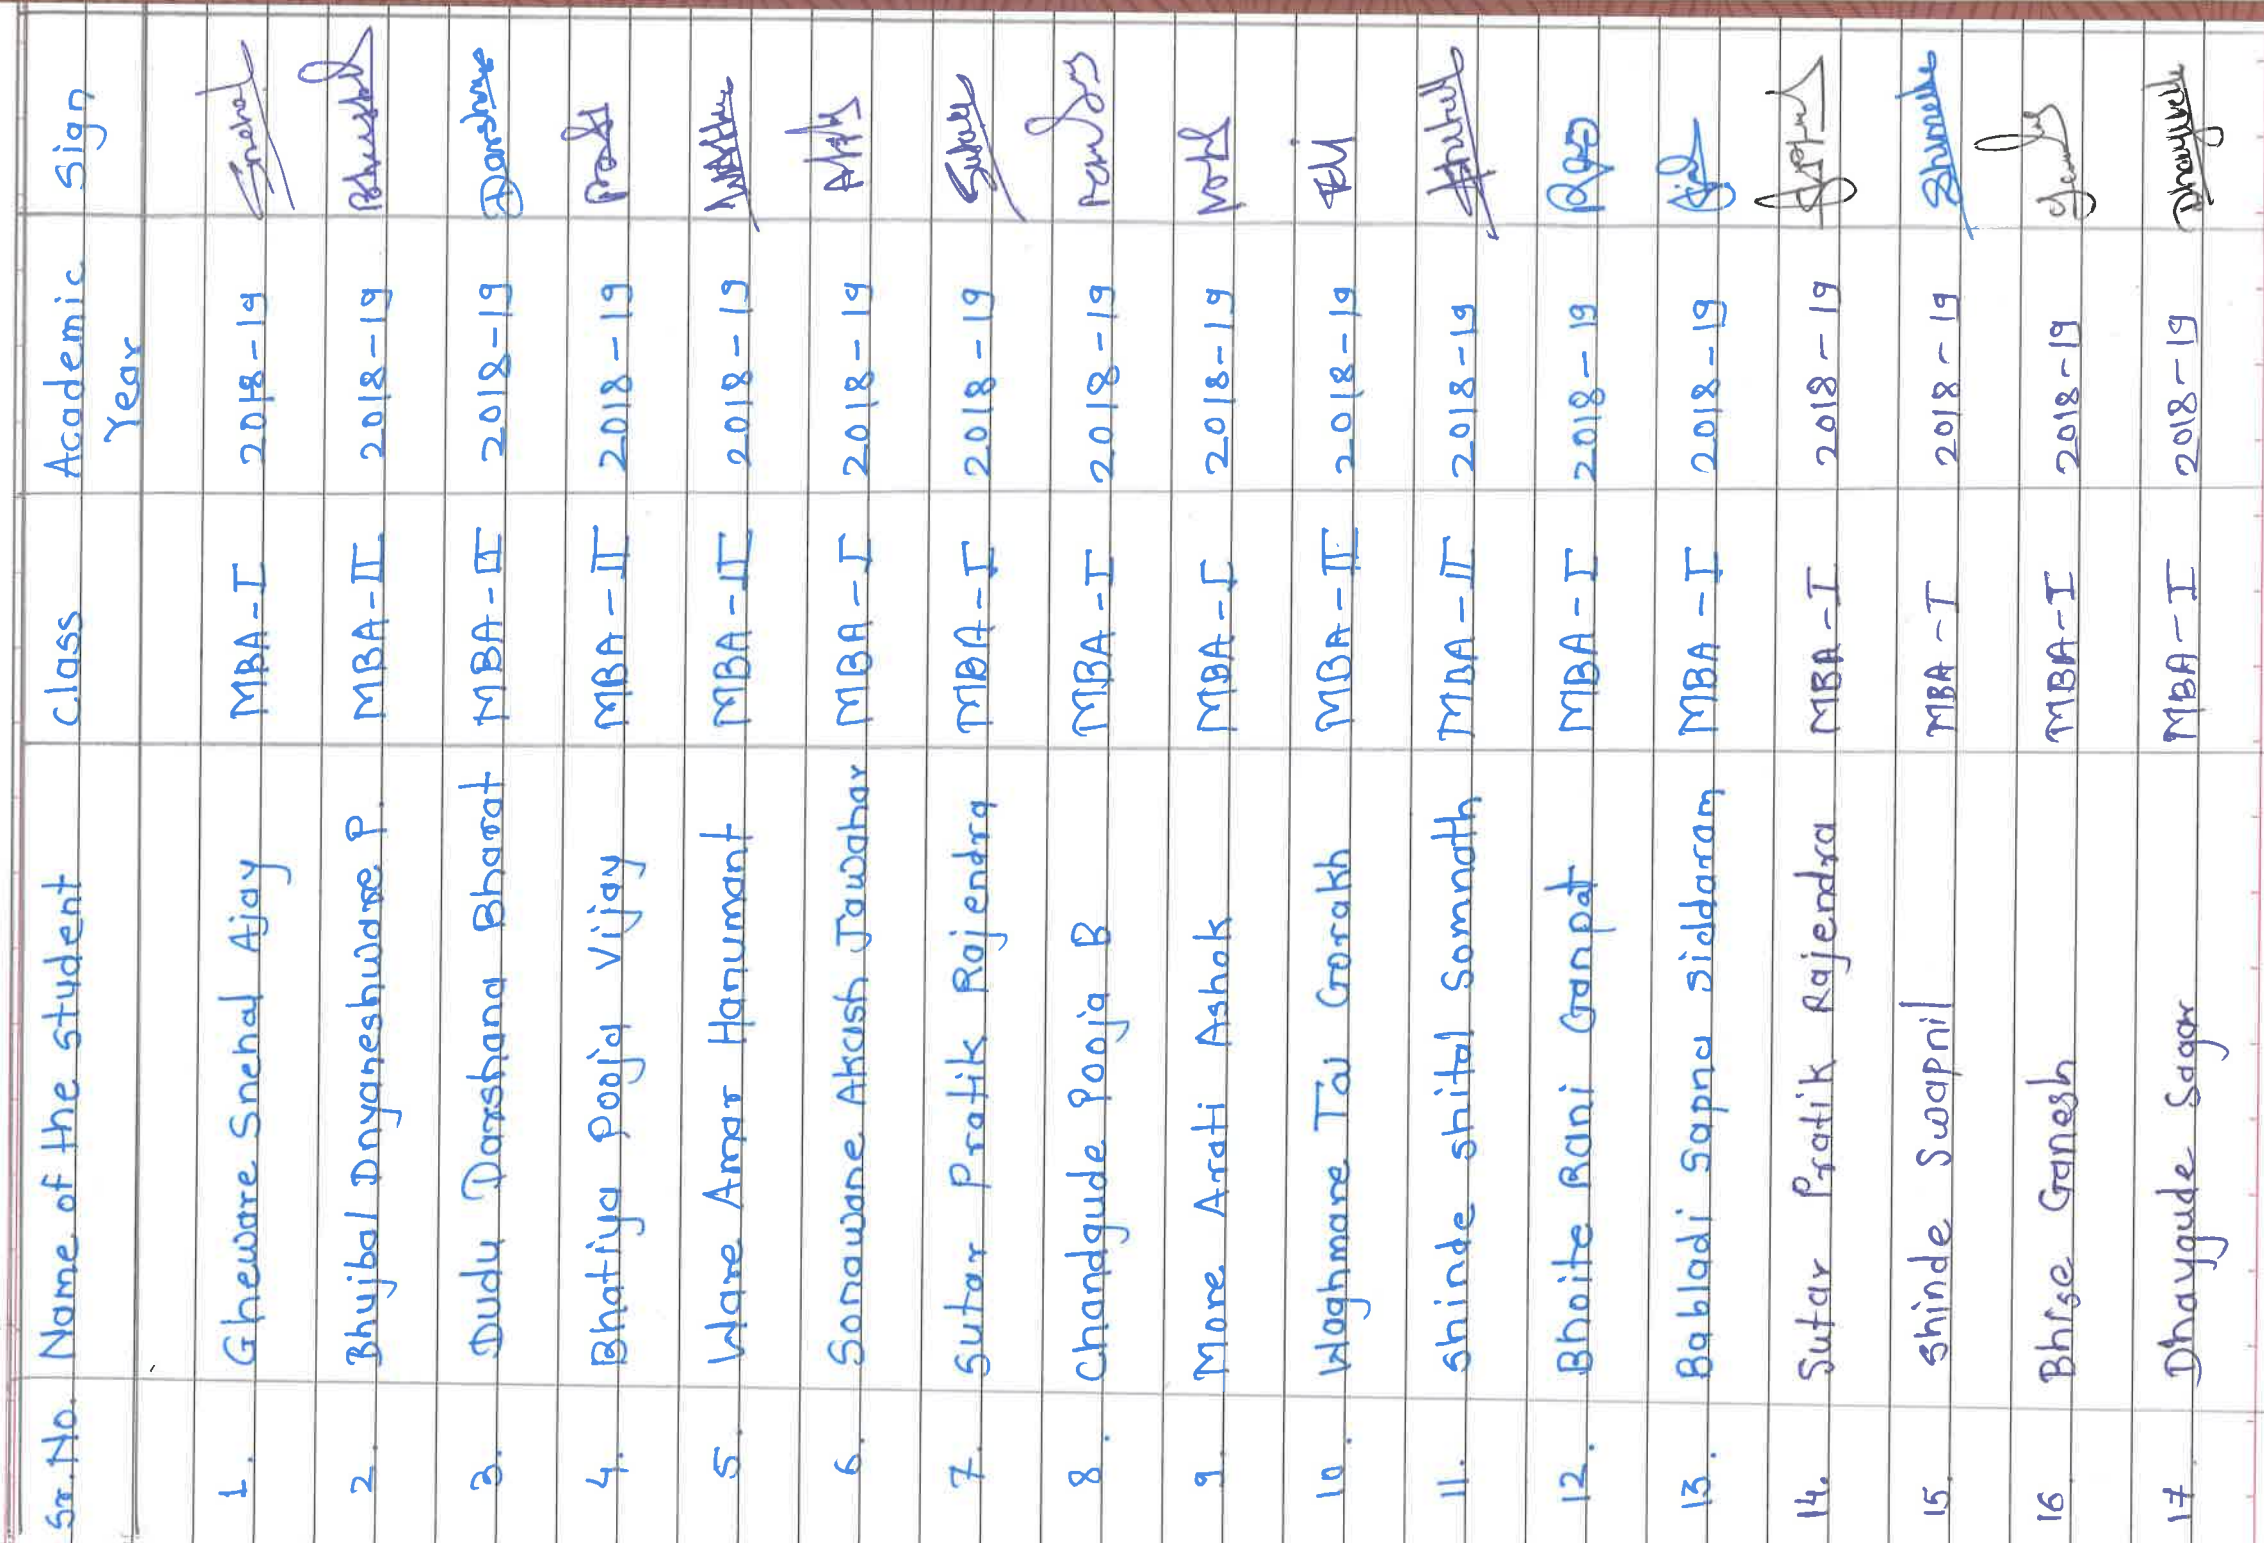 Sr. No. Name of the student Class Academic Year Sign
1. Gheware Snehal Ajay MBA-I 2018-19 Snehal
2. Bhujbal Dnyaneshware P. MBA-II 2018-19 Bhujbal
3. Dudu Darshana Bharat MBA-II 2018-19 Darshana
4. Bhatiya Pooja Vijay MBA-II 2018-19
5. Ware Amar Hanumant MBA-II 2018-19
6. Sonawane Akash Jawahar MBA-I 2018-19
7. Sutar Pratik Rajendra MBA-I 2018-19
8. Chandgude Pooja B MBA-I 2018-19
9. More Arati Ashok MBA-I 2018-19
10. Waghmare Tai Gorakh MBA-II 2018-19
11. Shinde shital Somnath MBA-II 2018-19
12. Bhoite Rani Ganpat MBA-I 2018-19
13. Babladi Sapna Siddaram MBA-I 2018-19
14. Sutar Pratik Rajendra MBA-I 2018-19
15. Shinde Swapnil MBA-I 2018-19
16 Bhise Ganesh MBA-I 2018-19
17 Dhaygude Sagar MBA-I 2018-19